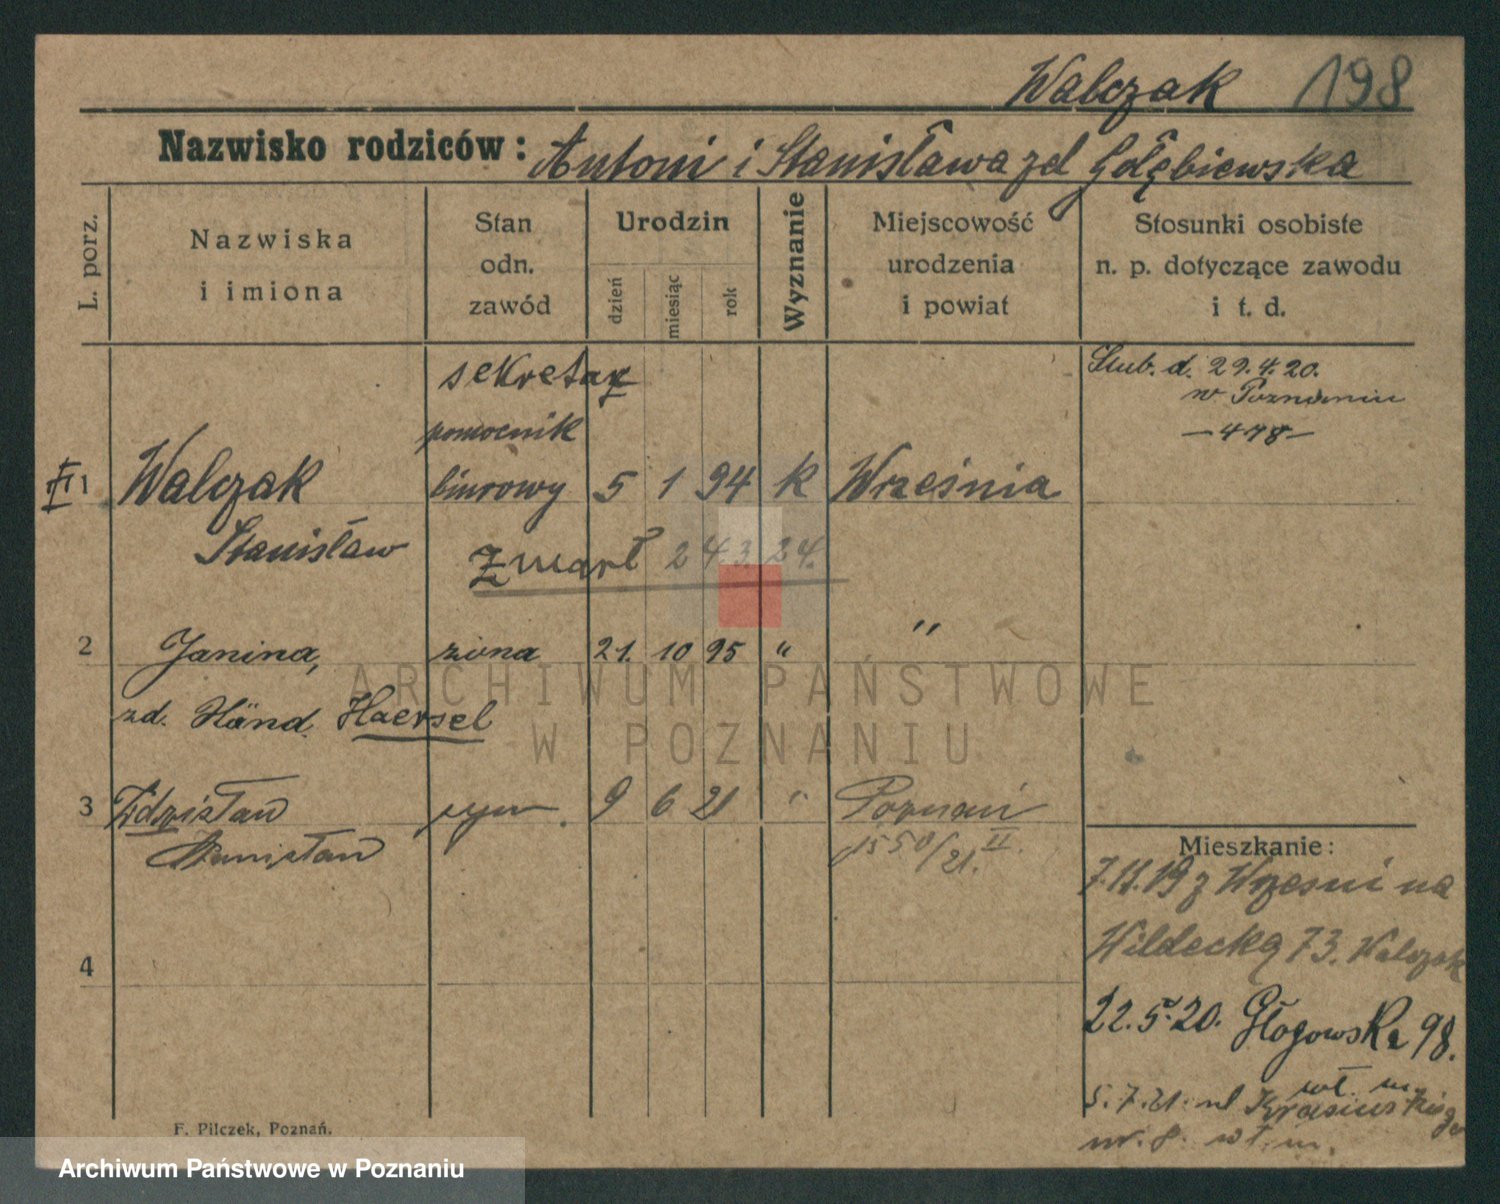 Walczak 198
Nazwisko rodziców: Antoni i Stanisława zd Gołębiewska
L. porz.
Nazwiska
i imiona
Stan
odn.
zawód
Urodzin
dzień
miesiąc
rok
Wyznanie
Miejscowość
urodzenia
i powiat
Stosunki osobiste
n. p. dotyczące zawodu
i t. d.
sekretarz
Ślub. d. 29.4.20.
w Poznaniu
— 478 —
pomocnik
1 Walczak biurowy 5 1 94 k Września
Stanisław
Zmarł 24.3.24.
2 Janina, żona 21. 10 95 " "
zd. Händ. Haensel
3 Zdzisław syn 9 6 21 " Poznań
Stanisław 1550/21. II.
4
Mieszkanie:
7.11.19 z Wrzesni na
Wildecką 73. Walczak
22.5.20. Głogowska 98.
wł. m.
5.7.21. ul Krasińskiego
nr. 8. wł. m.
F. Pilczek, Poznań.
ARCHIWUM PAŃSTWOWE
W POZNANIU
Archiwum Państwowe w Poznaniu